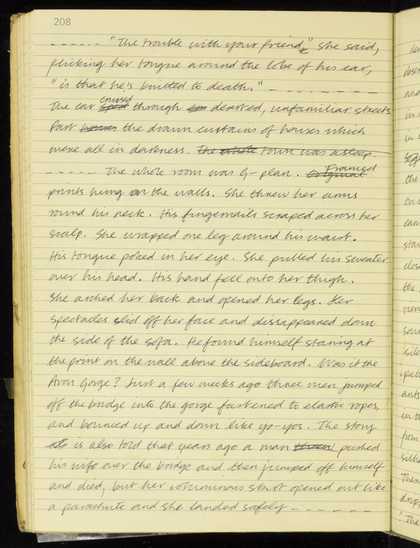 208
----- "The trouble with your friend," she said,
flicking her tongue around the lobe of his ear,
"is that he's knitted to death." -----
The car cruised through deserted, unfamiliar streets
Past the drawn curtains of houses which
were all in darkness. The whole town was asleep.
----- The whole room was G-plan. Framed
prints hung on the walls. She threw her arms
round his neck. His fingernails scraped across her
scalp. She wrapped one leg around his waist.
His tongue poked in her eye. She pulled his sweater
over his head. His hand fell onto her thigh.
She arched her back and opened her legs. Her
spectacles slid off her face and disappeared down
the side of the sofa. He found himself staring at
the print on the wall above the sideboard. Was it the
Avon Gorge? Just a few weeks ago three men jumped
off the bridge into the gorge fastened to elastic ropes
and bounced up and down like yo-yos. The story
is also told that years ago a man pushed
his wife over the bridge and then jumped off himself
and died, but her voluminous skirt opened out like
a parachute and she landed safely -----